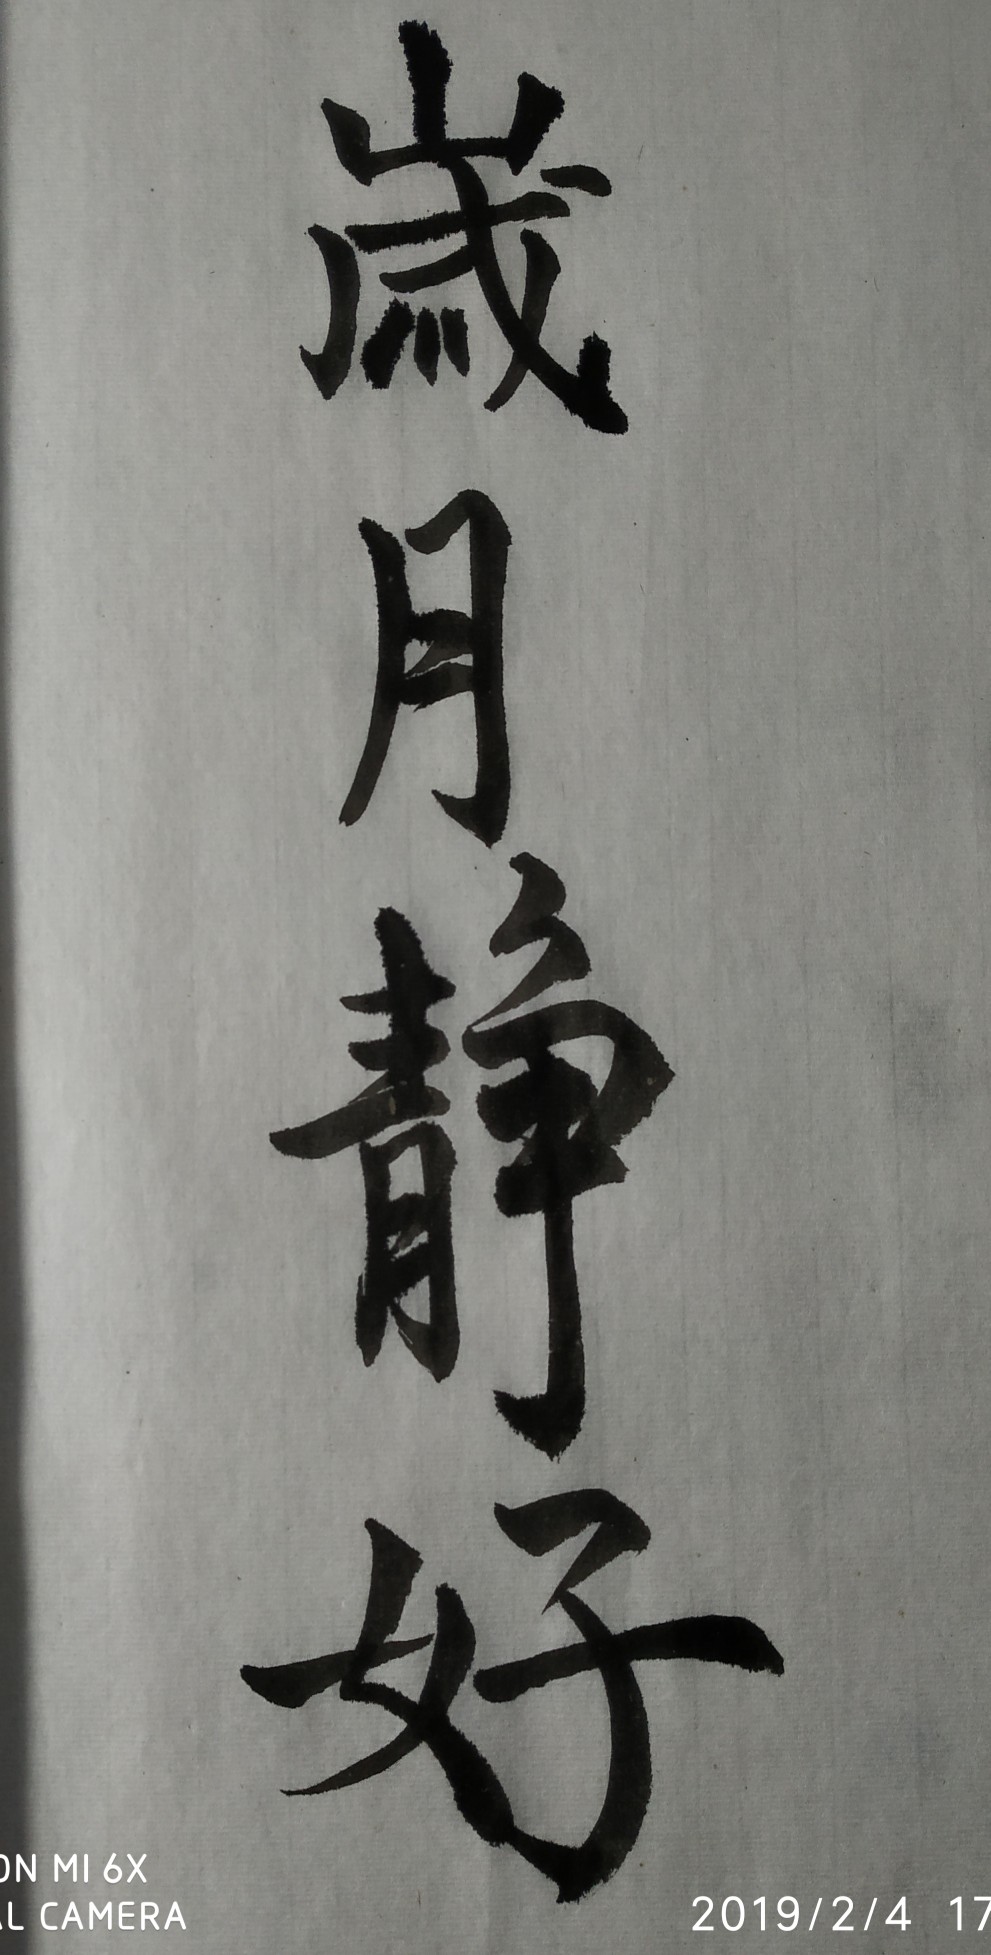 歲月静好
ON MI 6X
AL CAMERA
2019/2/4 17